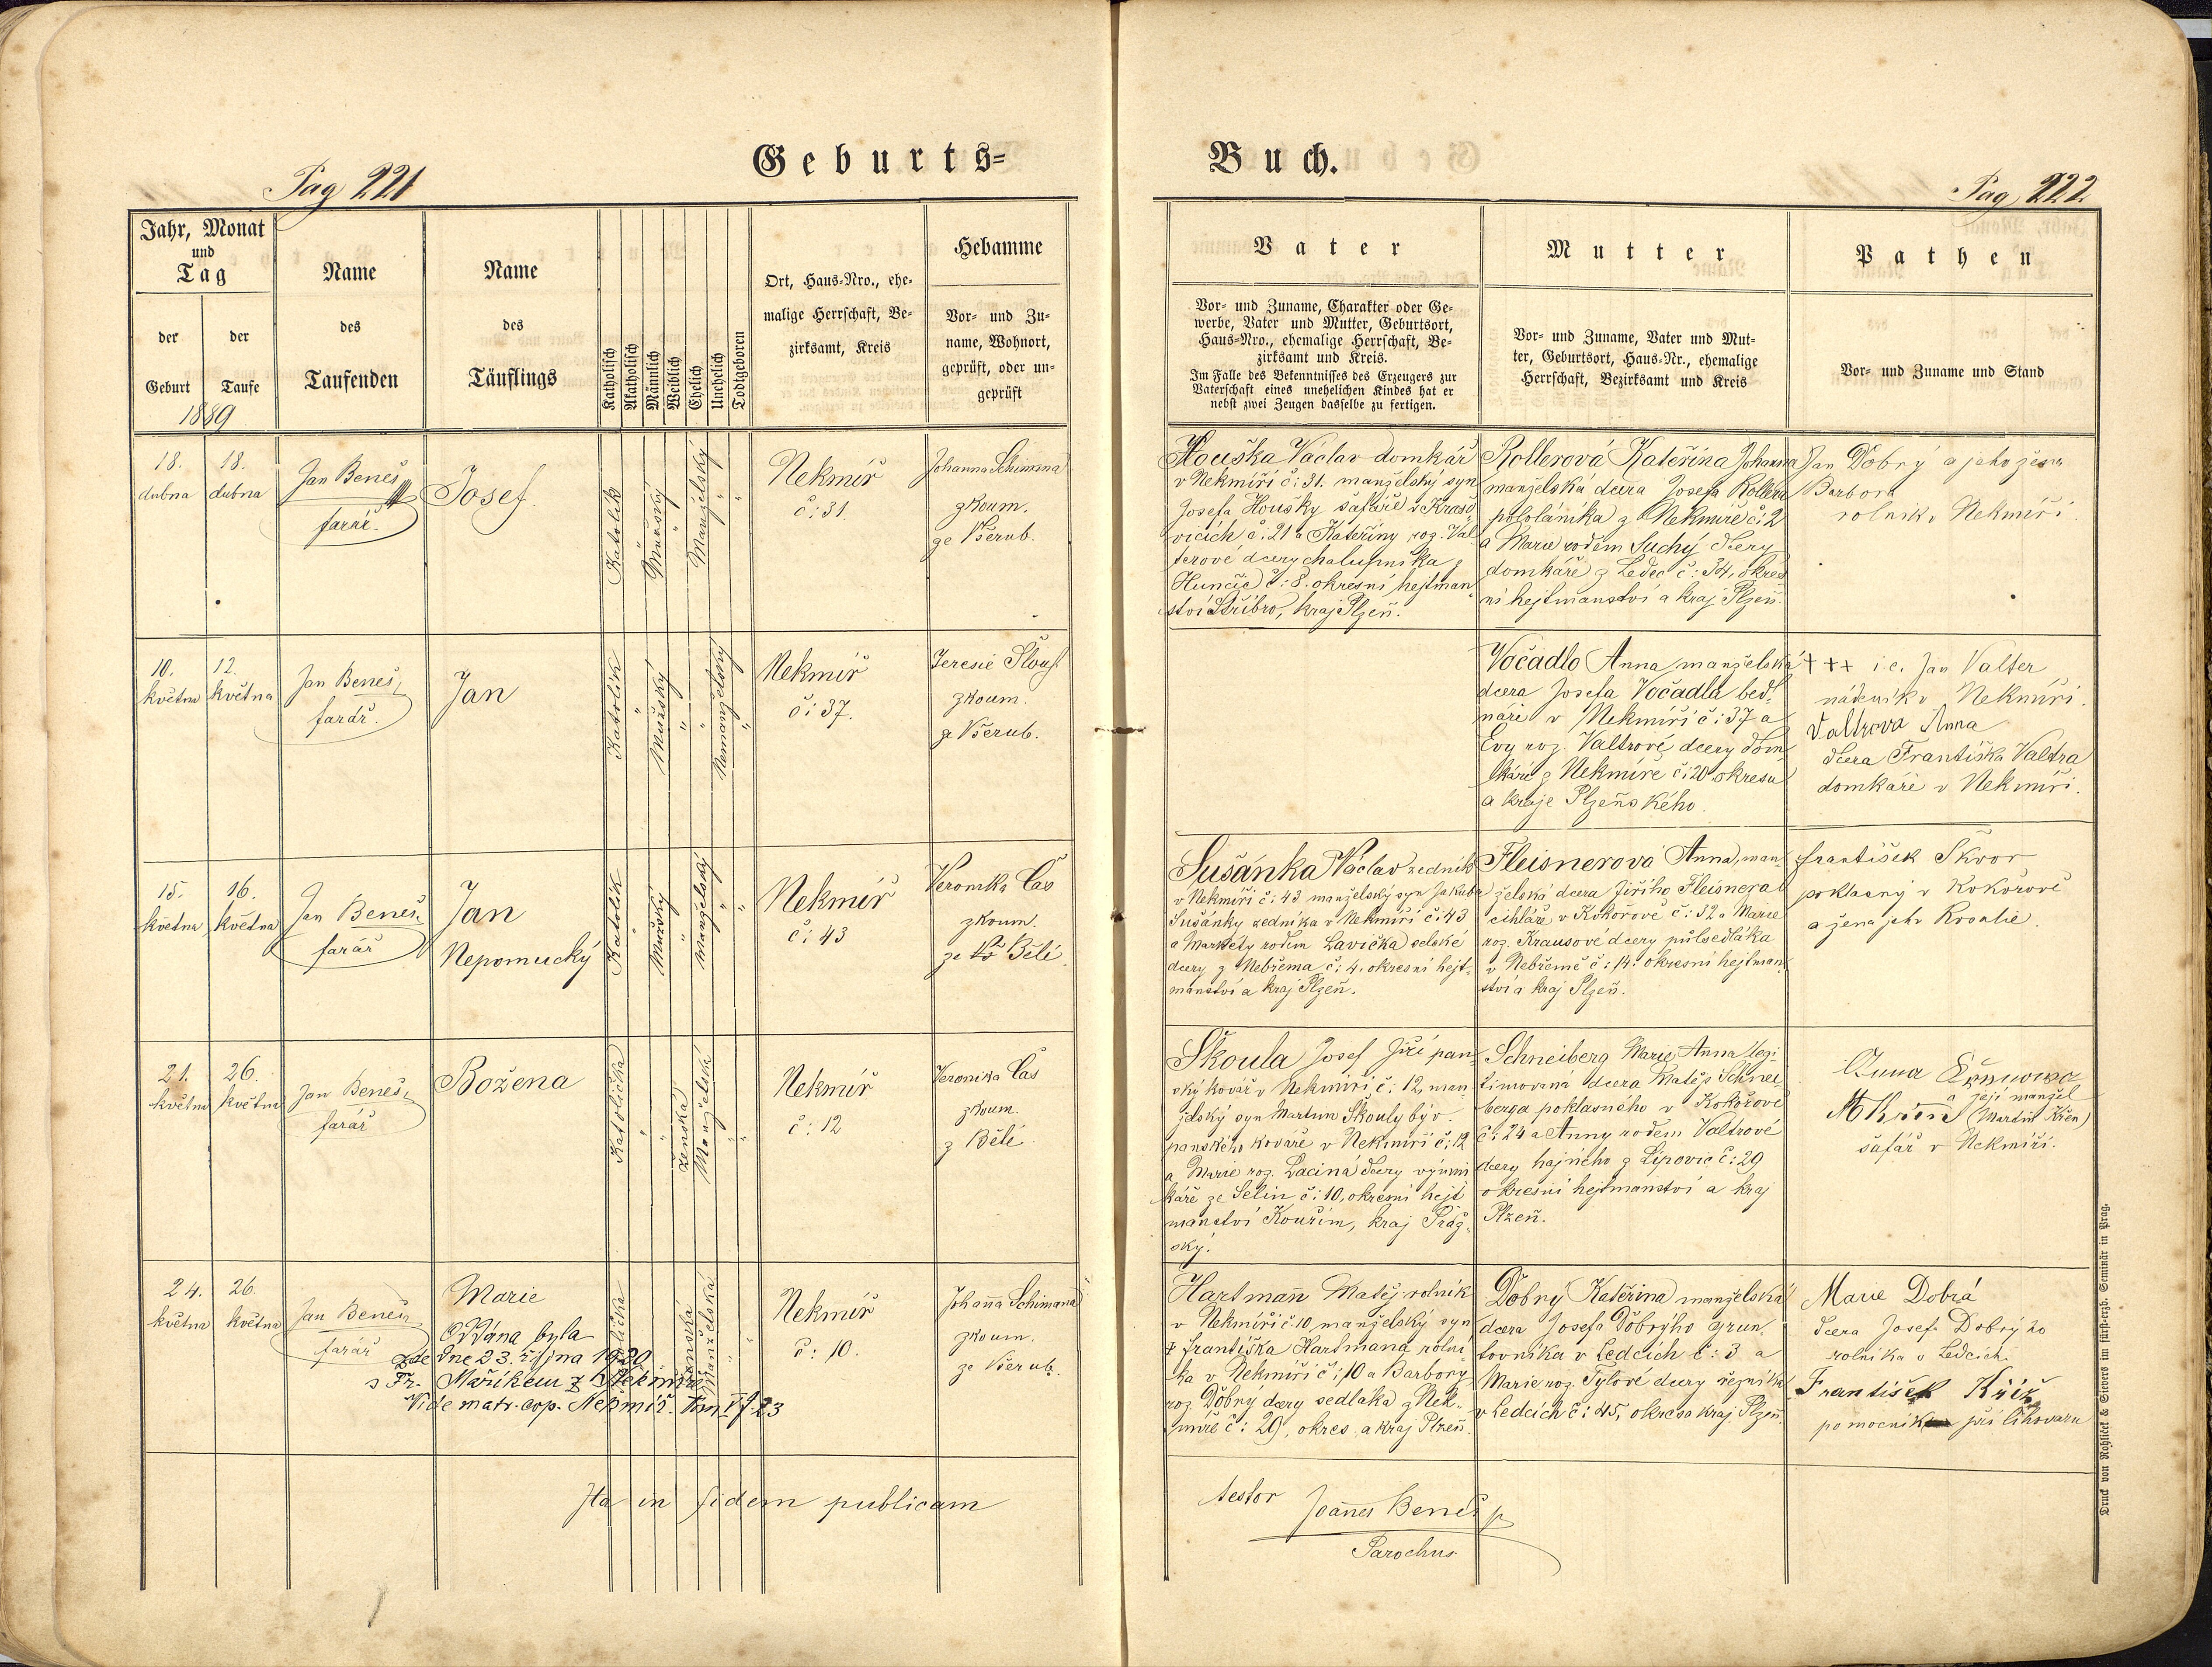 Geburts=
Buch.
Pag 221
Pag 222.
Jahr, Monat
und
Tag
der
Geburt
der
Taufe
1889
Name
des
Taufenden
Name
des
Täuflings
Katholisch
Akatholisch
Männlich
Weiblich
Ehelich
Unehelich
Todtgeboren
Ort, Haus=Nro., ehe=
malige Herrschaft, Be=
zirksamt, Kreis
Hebamme
Vor= und Zu=
name, Wohnort,
geprüft, oder un=
geprüft
Vater
Vor= und Zuname, Charakter oder Ge=
werbe, Vater und Mutter, Geburtsort,
Haus=Nro., ehemalige Herrschaft, Be=
zirksamt und Kreis.
Im Falle des Bekenntnisses des Erzeugers zur
Vaterschaft eines unehelichen Kindes hat er
nebst zwei Zeugen dasselbe zu fertigen.
Mutter
Vor= und Zuname, Vater und Mut=
ter, Geburtsort, Haus=Nr., ehemalige
Herrschaft, Bezirksamt und Kreis
Pathen
Vor= und Zuname und Stand
18.
dubna
18.
dubna
Jan Beneš
farář.
Josef.
Katolík
"
Mužský
"
Manželský
"
"
Nekmíř
č: 31.
Johanna Schimana
zkoum.
ze Všerub.
Houška Václav domkář
v Nekmíři č: 31. manželský syn
Josefa Houšky šafáře v Krašo
vicích č: 21 a Kateřiny roz. Val
terové dcery chalupníka z
Hunčic č: 8. okresní hejtman
ství Stříbro, kraj Plzeň.
Rollerová Kateřina Johanna
manželská dcera Josefa Rollera
pololáníka z Nekmíře č: 2
a Marie rodem Suchý dcery
domkáře z Ledec č: 34, okres
ní hejtmanství a kraj Plzeň.
Jan Dobrý a jeho žena
Barbora
rolník v Nekmíři.
10.
května
12.
května
Jan Beneš,
farář.
Jan
Katolík
"
Mužský
"
"
Nemanželský
"
Nekmíř
č: 37.
Teresie Slouf
zkoum.
ze Všerub.
Vočadlo Anna manželská
dcera Josefa Vočadla bed=
náře v Nekmíři č: 37 a
Evy roz. Valtrové dcery dom
káře z Nekmíře č: 20 okresu
a kraje Plzeňského.
+++ i.e. Jan Valter
nádeník v Nekmíři.
Valtrova Anna
dcera Františka Valtra
domkáře v Nekmíři.
15.
května
16.
května
Jan Beneš
farář
Jan
Nepomucký
Katolík
"
Mužský
"
Manželský
"
"
Nekmíř
č: 43
Veronika Čas
zkoum.
ze Bělé.
Sušánka Václav zedník
v Nekmíři č: 43 manželský syn Jakuba
Sušánky zedníka v Nekmíři č: 43
a Markéty rodem Lavička selské
dcery z Nebřema č: 4. okresní hejt=
manství a kraj Plzeň.
Fleisnerová Anna, man
želská dcera Jiřího Fleisnera
cihláře v Kokořově č: 32 a Marie
roz. Krausové dcery půlsedláka
v Nebřemě č: 14. okresní hejtman
ství a kraj Plzeň.
František Škvor
poklasný v Kokořově
a žena jeho Rosalie.
21.
května
26.
května
Jan Beneš,
farář
Božena
Katolička
"
"
Ženská
Manželská
"
"
Nekmíř
č: 12
Veronika Čas
zkoum.
z Bělé
Škoula Josef Jiří pan
ský kovář v Nekmíři č: 12, man
želský syn Martina Škouly býv.
panského kováře v Nekmíři č: 12
a Marie roz. Lacina dcery výmin
káře ze Selin č: 10, okresní hejt
manství Kouřim, kraj Praž=
ský.
Schneiberg Marie Anna legi
timovaná dcera Matěje Schnei
berga poklasného v Kokořově
č: 24 a Anny rodem Valtrové
dcery hajného z Lipovic č: 29
okresní hejtmanství a kraj
Plzeň.
Anna
a její manžel
M Křen (Martin Křen)
šafář v Nekmíři.
24.
května
26.
května
Jan Beneš,
farář
Marie
Oddána byla
zde dne 23. října 1920
s Fr. Maříkem z Nekmíře
Vide matr. cop. Nekmíř. tom V f 23
Katolička
Ženská
Manželská
"
"
Nekmíř
č: 10.
Johanna Schimana
zkoum.
ze Všerub.
Hartmann Matěj rolník
v Nekmíři č: 10, manželský syn
† Františka Hartmana, rolní
ka v Nekmíři č: 10 a Barbory
roz. Dobrý dcery sedláka z Nek=
míře č: 29, okres a kraj Plzeň.
Dobrý Kateřina manželská
dcera Josefa Dobrýho grun
tovníka v Ledcích č: 3 a
Marie roz. Tylové dcery řezníka
v Ledcích č: 45, okres a kraj Plzeň.
Marie Dobrá
dcera Josefa Dobrýho
rolníka v Ledcích.
František Kříž
pomocník při lihovaru
Ita in fidem publicam
testor Joannes Beneš
Parochus
Druck von Rohliček & Sievers im fürst=erzb. Seminär in Prag.